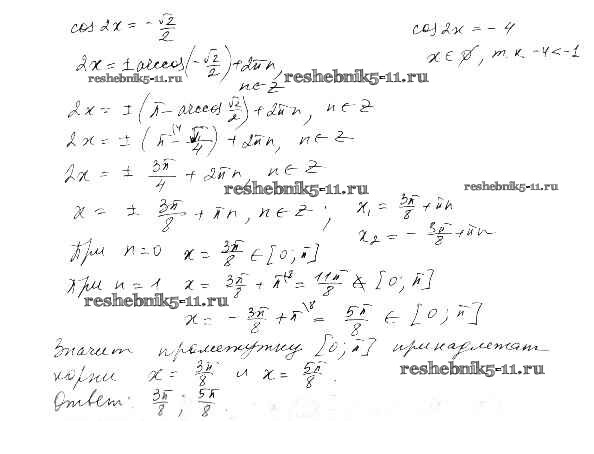 cos 2x = -√2/2
cos 2x = -4
2x = ± arccos(-√2/2) + 2πn,
n ∈ Z
x ∈ ∅, т.к. -4 < -1
reshebnik5-11.ru
reshebnik5-11.ru
2x = ± (π - arccos √2/2) + 2πn, n ∈ Z
2x = ± (π\4 - π/4) + 2πn, n ∈ Z
2x = ± 3π/4 + 2πn, n ∈ Z
reshebnik5-11.ru
reshebnik5-11.ru
x = ± 3π/8 + πn, n ∈ Z; x₁ = 3π/8 + πn
x₂ = -3π/8 + πn
При n=0 x = 3π/8 ∈ [0; π]
При n=1 x = 3π/8 + π\8 = 11π/8 ∉ [0; π]
reshebnik5-11.ru
x = -3π/8 + π\8 = 5π/8 ∈ [0; π]
Значит промежутку [0; π] принадлежат
корни x = 3π/8 и x = 5π/8.
reshebnik5-11.ru
Ответ: 3π/8; 5π/8.